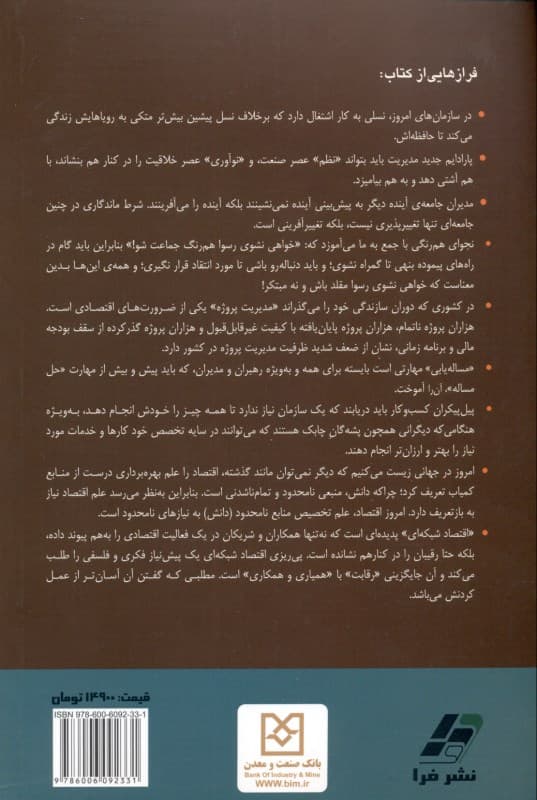 فرازهایی از کتاب:
در سازمان‌های امروز، نسلی به کار اشتغال دارد که برخلاف نسل پیشین بیش‌تر متکی به رویاهایش زندگی
می‌کند تا حافظه‌اش.
پارادایم جدید مدیریت باید بتواند «نظم» عصر صنعت، و «نوآوری» عصر خلاقیت را در کنار هم بنشاند، با
هم آشتی دهد و به هم بیامیزد.
مدیران جامعه‌ی آینده دیگر به پیش‌بینی آینده نمی‌نشینند بلکه آینده را می‌آفرینند. شرط ماندگاری در چنین
جامعه‌ای تنها تغییرپذیری نیست، بلکه تغییرآفرینی است.
نجوای هم‌رنگی با جمع به ما می‌آموزد که: «خواهی نشوی رسوا هم‌رنگ جماعت شو!» بنابراین باید گام در
راه‌های پیموده بنهی تا گمراه نشوی؛ و باید دنباله‌رو باشی تا مورد انتقاد قرار نگیری؛ و همه‌ی این‌ها بدین
معناست که خواهی نشوی رسوا مقلد باش و نه مبتکر!
در کشوری که دوران سازندگی خود را می‌گذراند «مدیریت پروژه» یکی از ضرورت‌های اقتصادی است.
هزاران پروژه ناتمام، هزاران پروژه پایان‌یافته با کیفیت غیرقابل‌قبول و هزاران پروژه گذرکرده از سقف بودجه
مالی و برنامه زمانی، نشان از ضعف شدید ظرفیت مدیریت پروژه در کشور دارد.
«مساله‌یابی» مهارتی است بایسته برای همه و به‌ویژه رهبران و مدیران، که باید پیش و بیش از مهارت «حل
مساله»، آن‌را آموخت.
پیل‌پیکران کسب‌وکار باید دریابند که یک سازمان نیاز ندارد تا همه چیز را خودش انجام دهد، به‌ویژه
هنگامی‌که دیگرانی همچون پشه‌گان چابک هستند که می‌توانند در سایه تخصص خود کارها و خدمات مورد
نیاز را بهتر و ارزان‌تر انجام دهند.
امروز در جهانی زیست می‌کنیم که دیگر نمی‌توان مانند گذشته، اقتصاد را علم بهره‌برداری درست از منابع
کمیاب تعریف کرد؛ چراکه دانش، منبعی نامحدود و تمام‌ناشدنی است. بنابراین به‌نظر می‌رسد علم اقتصاد نیاز
به بازتعریف دارد. امروز اقتصاد، علم تخصیص منابع نامحدود (دانش) به نیازهای نامحدود است.
«اقتصاد شبکه‌ای» پدیده‌ای است که نه‌تنها همکاران و شریکان در یک فعالیت اقتصادی را به‌هم پیوند داده،
بلکه حتا رقیبان را در کنارهم نشانده است. پی‌ریزی اقتصاد شبکه‌ای یک پیش‌نیاز فکری و فلسفی را طلب
می‌کند و آن جایگزینی «رقابت» با «همیاری و همکاری» است. مطلبی که گفتن آن آسان‌تر از عمل
کردنش می‌باشد.
قیمت: ۱۴۹۰۰ تومان
ISBN 978-600-6092-33-1
9786006092331
بانک صنعت و معدن
Bank Of Industry & Mine
www.bim.ir
نشر فرا